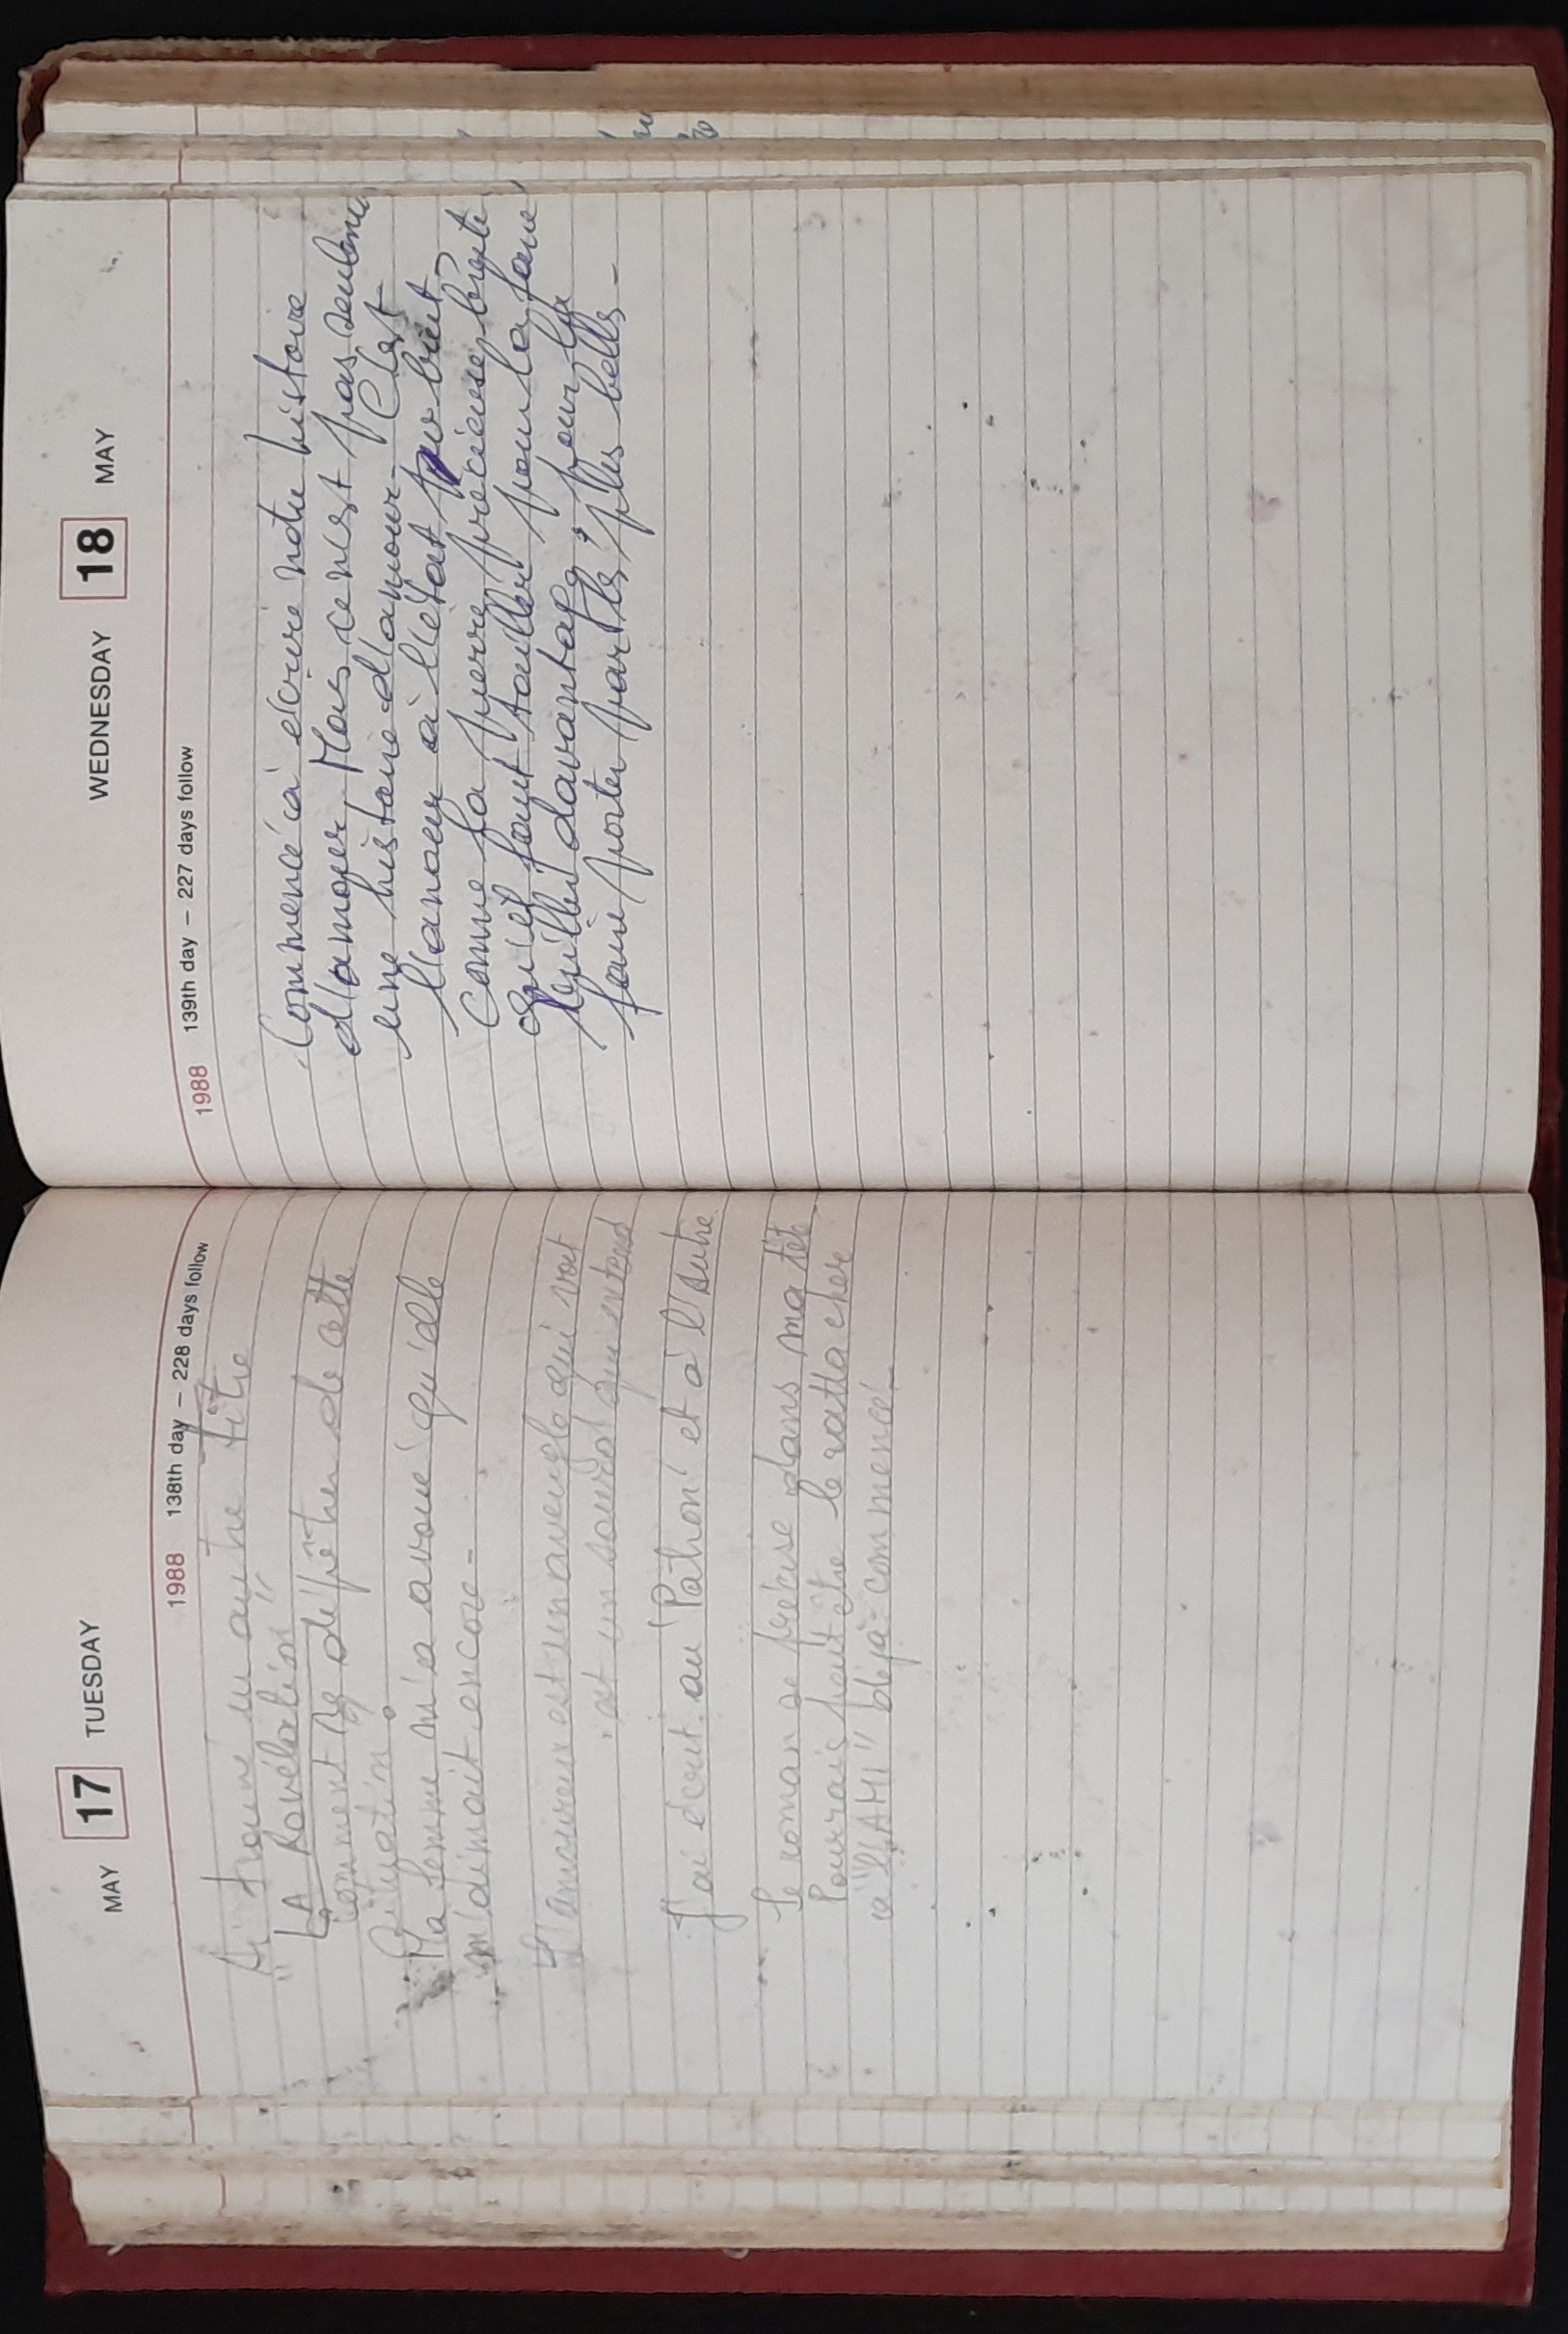 MAY 17 TUESDAY
1988 138th day – 228 days follow
Ai trouvé un autre titre
"LA Révélation"
Comment se dépêtrer de cette
Situation.
Ma femme m'a avoué qu'elle
m'aimait encore -
L'amoureux est un aveugle qui voit
et un sourd qui entend
J'ai écrit au Pathon et à l'autre
Le roman se précise dans ma tête
Pourrais peut être le rattacher
à "L'AMI" déjà commencé -
WEDNESDAY 18 MAY
1988 139th day – 227 days follow
Commencé à écrire notre histoire
d'amour. Mais ce n'est pas seulement
une histoire d'amour - C'est
l'amour à l'état brut
Comme la pierre précieuse brute
qu'il faut tailler pour la faire
briller davantage, pour la
faire porter par les plus belles -